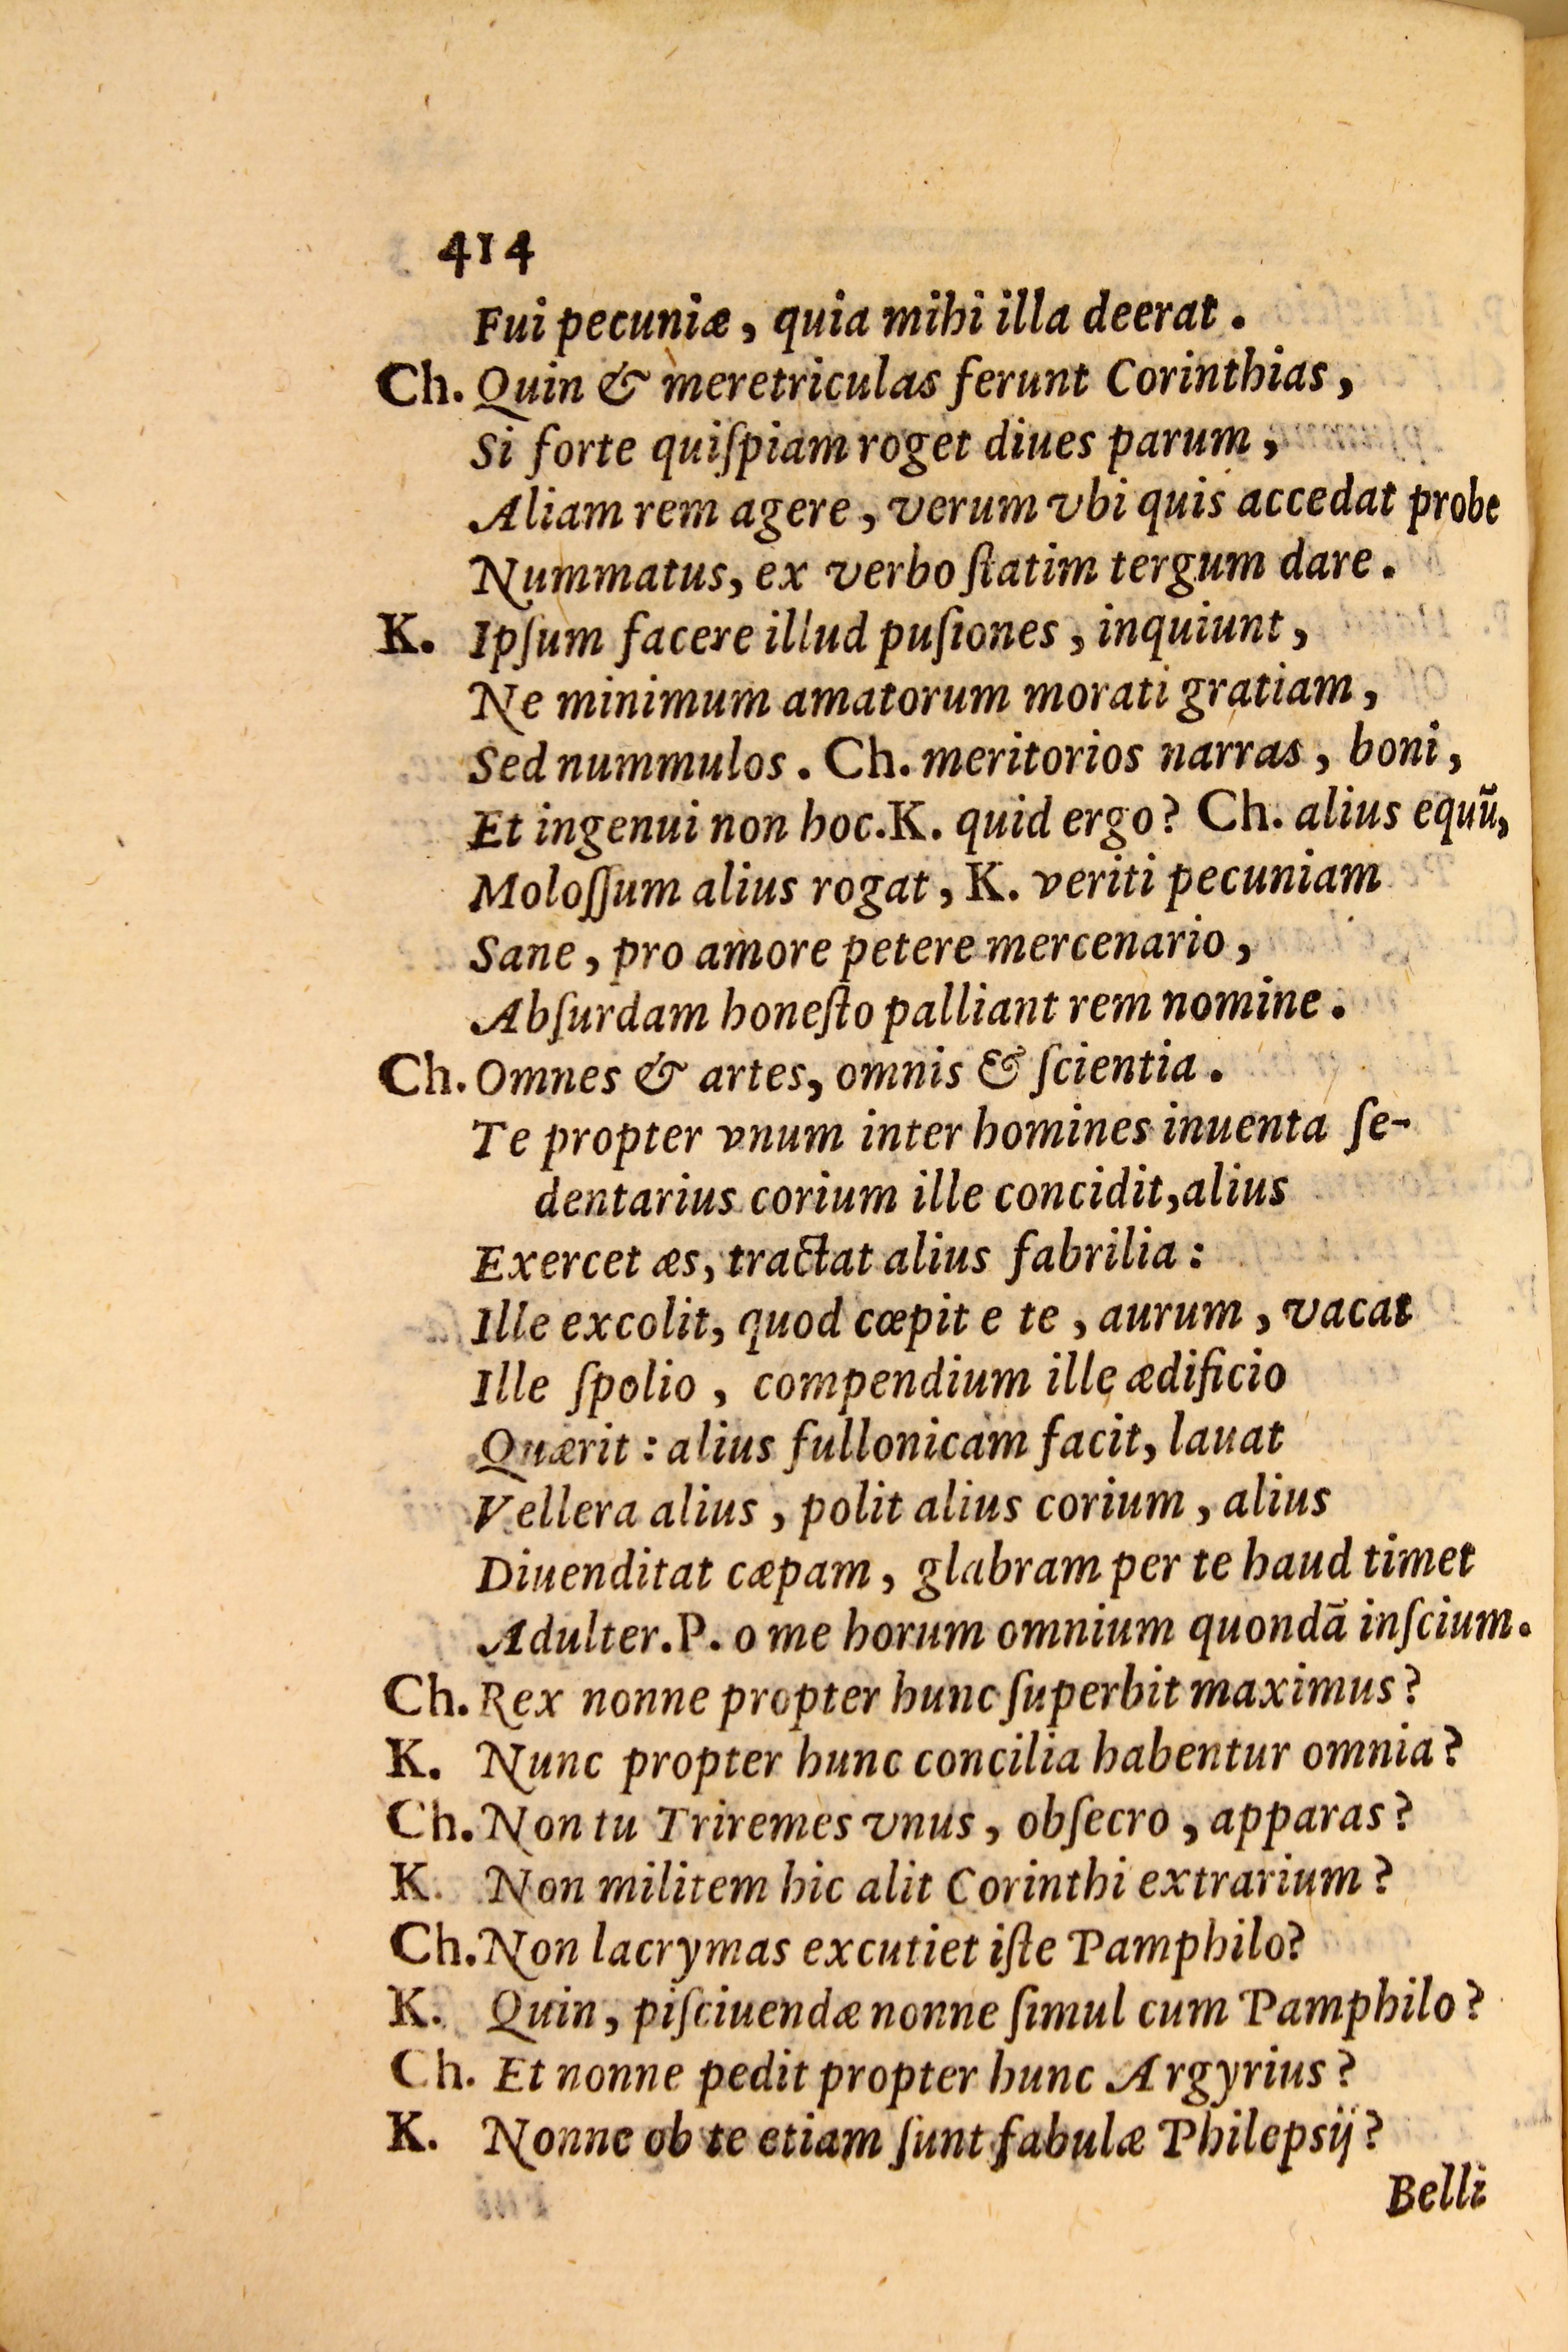 414
Fui pecuniæ, quia mihi illa deerat.
Ch. Quin & meretriculas ferunt Corinthias,
Si forte quiſpiam roget diues parum,
Aliam rem agere, verum vbi quis accedat probe
Nummatus, ex verbo ſtatim tergum dare.
K. Ipſum facere illud puſiones, inquiunt,
Ne minimum amatorum morati gratiam,
Sed nummulos. Ch. meritorios narras, boni,
Et ingenui non hoc. K. quid ergo? Ch. alius equū,
Moloſſum alius rogat, K. veriti pecuniam
Sane, pro amore petere mercenario,
Abſurdam honeſto palliant rem nomine.
Ch. Omnes & artes, omnis & ſcientia.
Te propter vnum inter homines inuenta ſe-
dentarius corium ille concidit, alius
Exercet æs, tractat alius fabrilia:
Ille excolit, quod cœpit e te, aurum, vacat
Ille ſpolio, compendium ille ædificio
Quærit: alius fullonicam facit, lauat
Vellera alius, polit alius corium, alius
Diuenditat cæpam, glabram per te haud timet
Adulter. P. o me horum omnium quondā inſcium.
Ch. Rex nonne propter hunc ſuperbit maximus?
K. Nunc propter hunc concilia habentur omnia?
Ch. Non tu Triremes vnus, obſecro, apparas?
K. Non militem hic alit Corinthi extrarium?
Ch. Non lacrymas excutiet iſte Pamphilo?
K. Quin, piſciuendæ nonne ſimul cum Pamphilo?
Ch. Et nonne pedit propter hunc Argyrius?
K. Nonne ob te etiam ſunt fabulæ Philepsij?
Belli